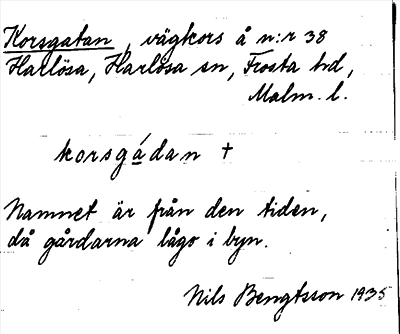 Korsgatan, vägkors å n:r 38
Harlösa, Harlösa sn, Frosta hd,
Malm. l.
korsgádan +
Namnet är från den tiden,
då gårdarna lågo i byn.
Nils Bengtsson 1935